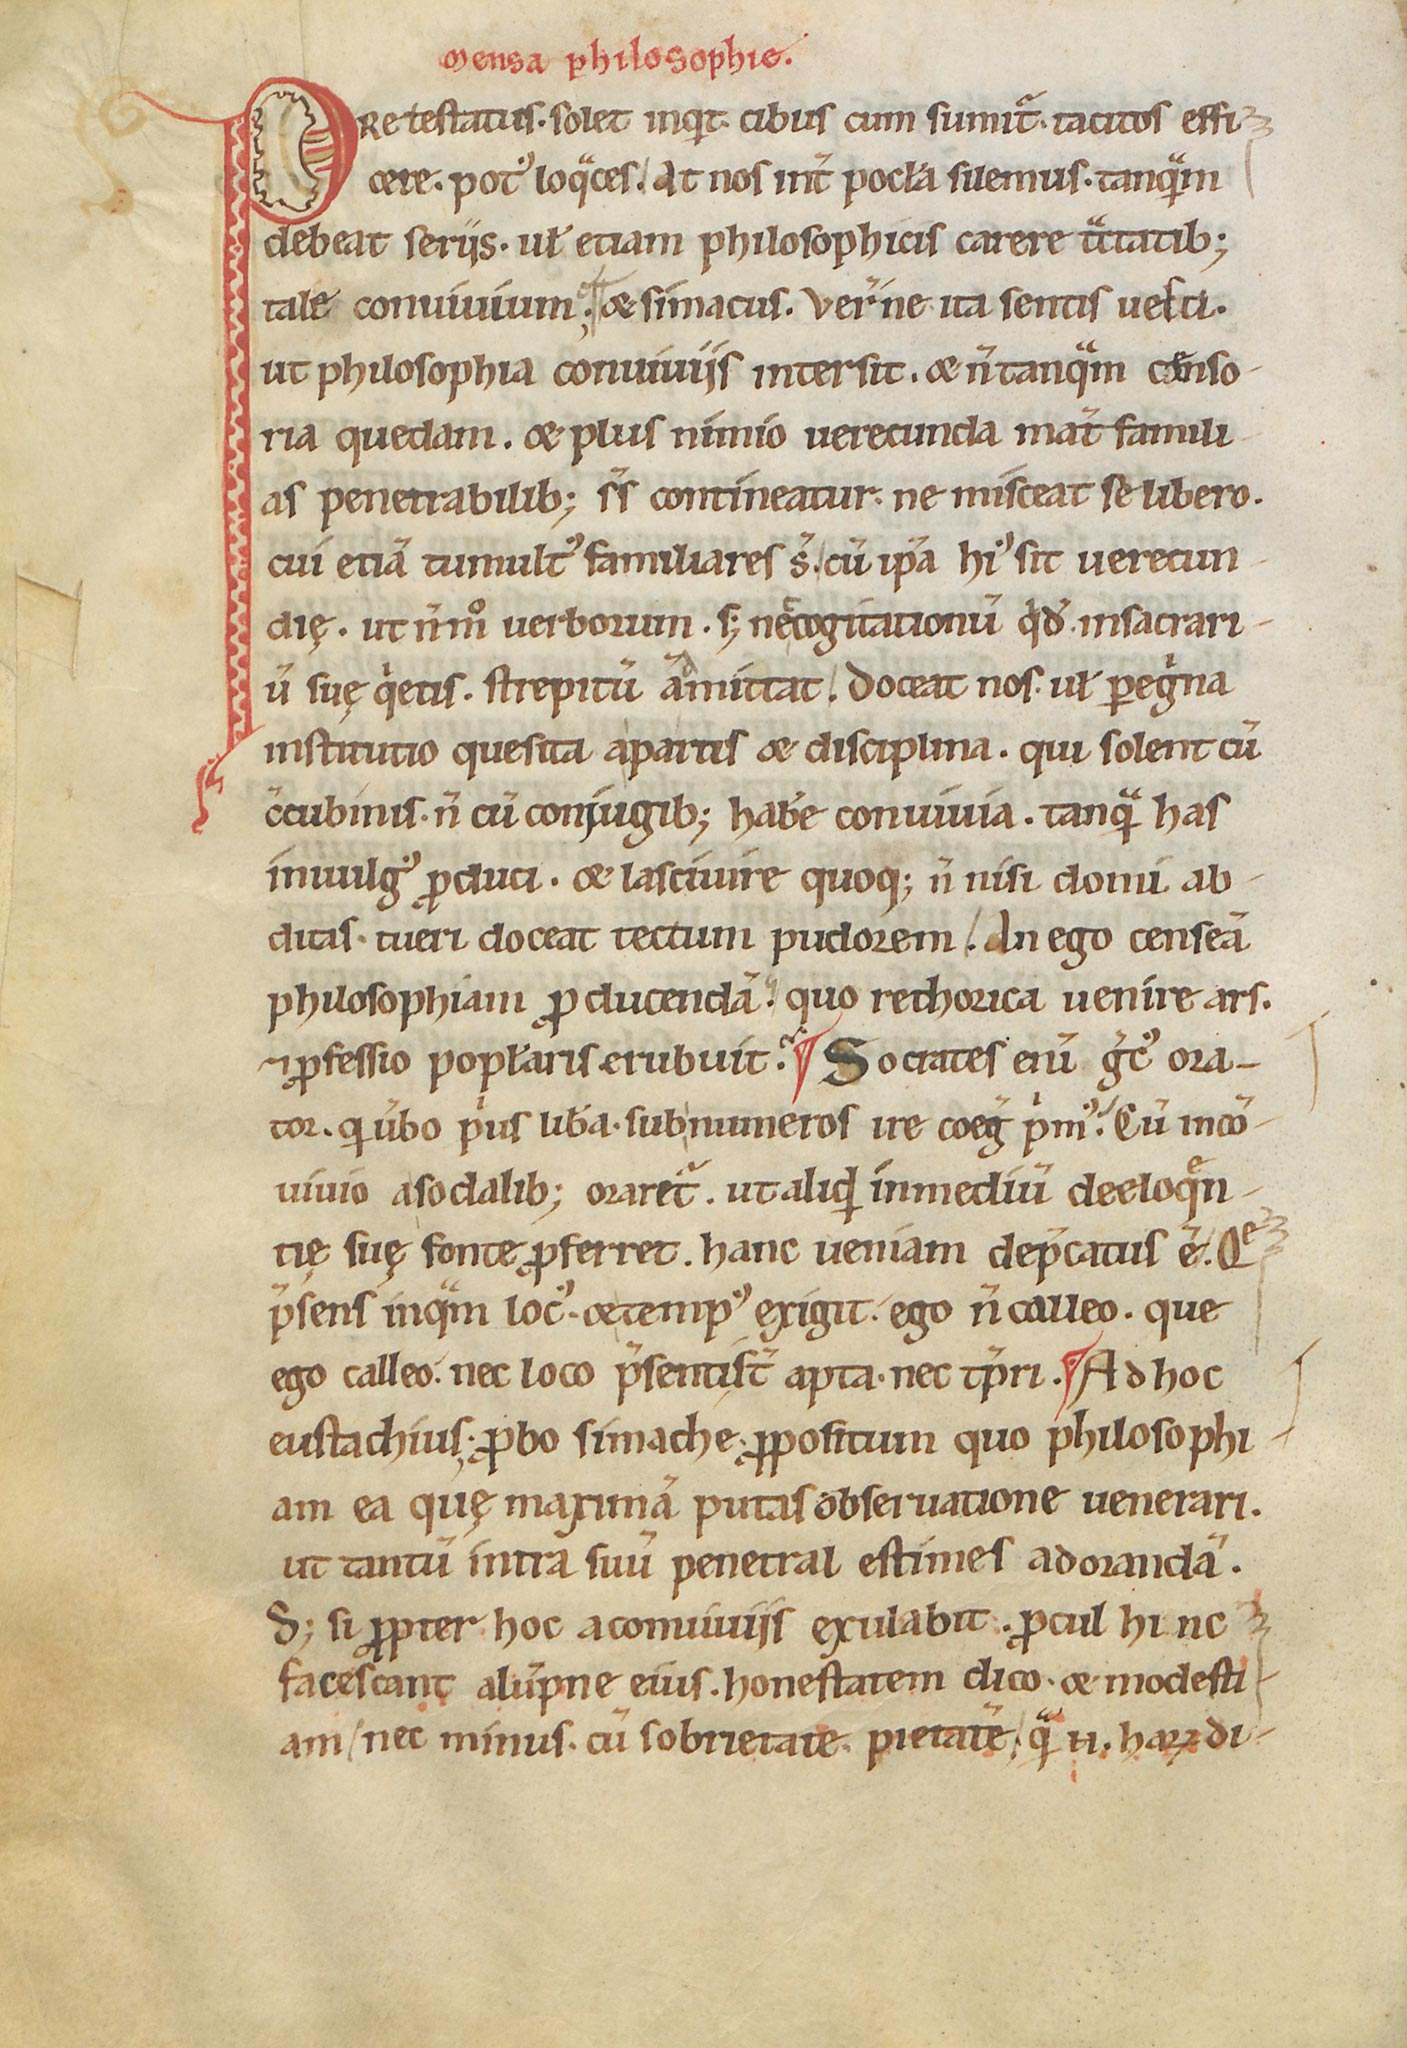 Mensa philosophie.
PRetestatus. solet inq̇t. cibus cum sumit᷑. tacitos effi
cere. potꝰ loqͣces. At nos int̄ pocła silemus. tanqͣm
debeat serijs. uł etiam philosophicis carere tͣctatib;
tale conuiuium; & simacus. Ver̄ne ita sentis uecti.
ut philosophia conuiuijs intersit. & n̄ tanqͣm censo-
ria quedam. & plus nimio uerecunda mat̄ famili-
as penetrabilib; s̄s contineatur. ne misceat se libero.
cui etiā tumultꝰ familiares s̄. cū ip̄a hiꝰ sit uerecun-
dię. ut n̄mͦ uerborum. s; nec cogitationū qͥd̄. insacrari-
ū suę qͥetis. strepitū am̄ittat. Doceat nos. uł peg̍na
institutio quesita apartis & disciplina. qui solent cū
c̄cubinis. n̄ cū conjugib; hab̄e conuiuia. tanqͣ has
inuulgꝰ ꝓduci. & lasciuire quoq; n̄ nisi domi ab-
ditas. tueri doceat tectum pudorem. An ego censeā
philosophiam ꝓducendā. quo rethorica uenire ars.
⁊ ꝓfessio popłaris erubuit. Socrates enī gͨ̄ꝰ ora-
tor. qͥ ūbo pͥus lib̄a. sub numeros ire coeḡ pͥmꝰ. Cū incō-
uiuio asodalib; oraret᷑. ut aliqͥd inmediū deeloqͤn-
tię suę fonte ꝓferret. hanc ueniam dep̄catus ē. Qͤ
p̄sens inqͣm locꝰ. & tempꝰ exigit. ego n̄ calleo. que
ego calleo. nec loco p̄senti s̄t apta. nec tp̄ri. Ad hoc
eustachius; ꝓbo simache ꝓpositum quo philosophi
am ea quę maximā putas obseruatione uenerari.
ut tantū intra suū penetral estimes adorandā.
S; si ꝓpter hoc aconuiuijs exulabit. ꝓcul hinc
facescant alūpne eius. honestatem dico. & modesti-
am nec minus. cū sobrietate pietatē. qͣ n. harꝝ di-